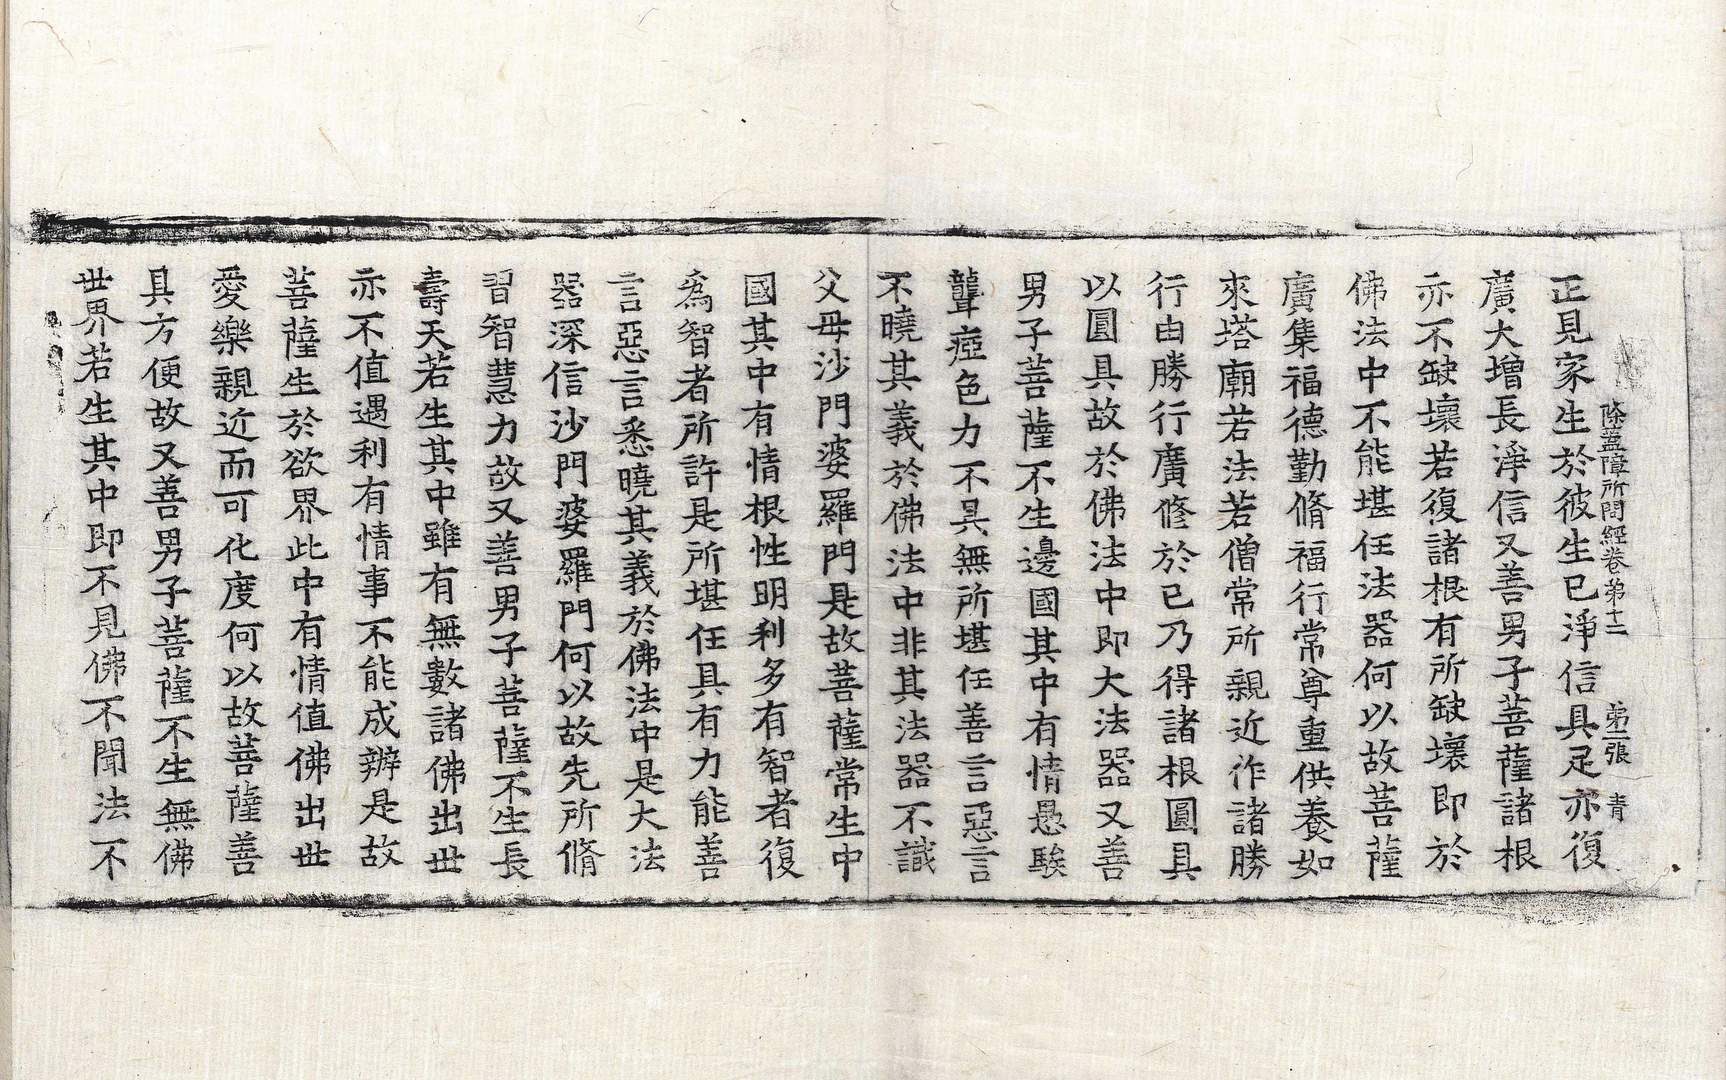 除蓋障所問經卷第十二 第二張 青
正見家生於彼生已淨信具足亦復
廣大增長淨信又善男子菩薩諸根
亦不缺壞若復諸根有所缺壞即於
佛法中不能堪任法器何以故菩薩
廣集福德勤脩福行常尊重供養如
來塔廟若法若僧常所親近作諸勝
行由勝行廣修於已乃得諸根圓具
以圓具故於佛法中即大法器又善
男子菩薩不生邊國其中有情愚騃
聾瘂色力不具無所堪任善言惡言
不曉其義於佛法中非其法器不識
父母沙門婆羅門是故菩薩常生中
國其中有情根性明利多有智者復
為智者所許是所堪任具有力能善
言惡言悉曉其義於佛法中是大法
器深信沙門婆羅門何以故先所脩
習智慧力故又善男子菩薩不生長
壽天若生其中雖有無數諸佛出世
亦不值遇利有情事不能成辦是故
菩薩生於欲界此中有情值佛出世
愛樂親近而可化度何以故菩薩善
具方便故又善男子菩薩不生無佛
世界若生其中即不見佛不聞法不